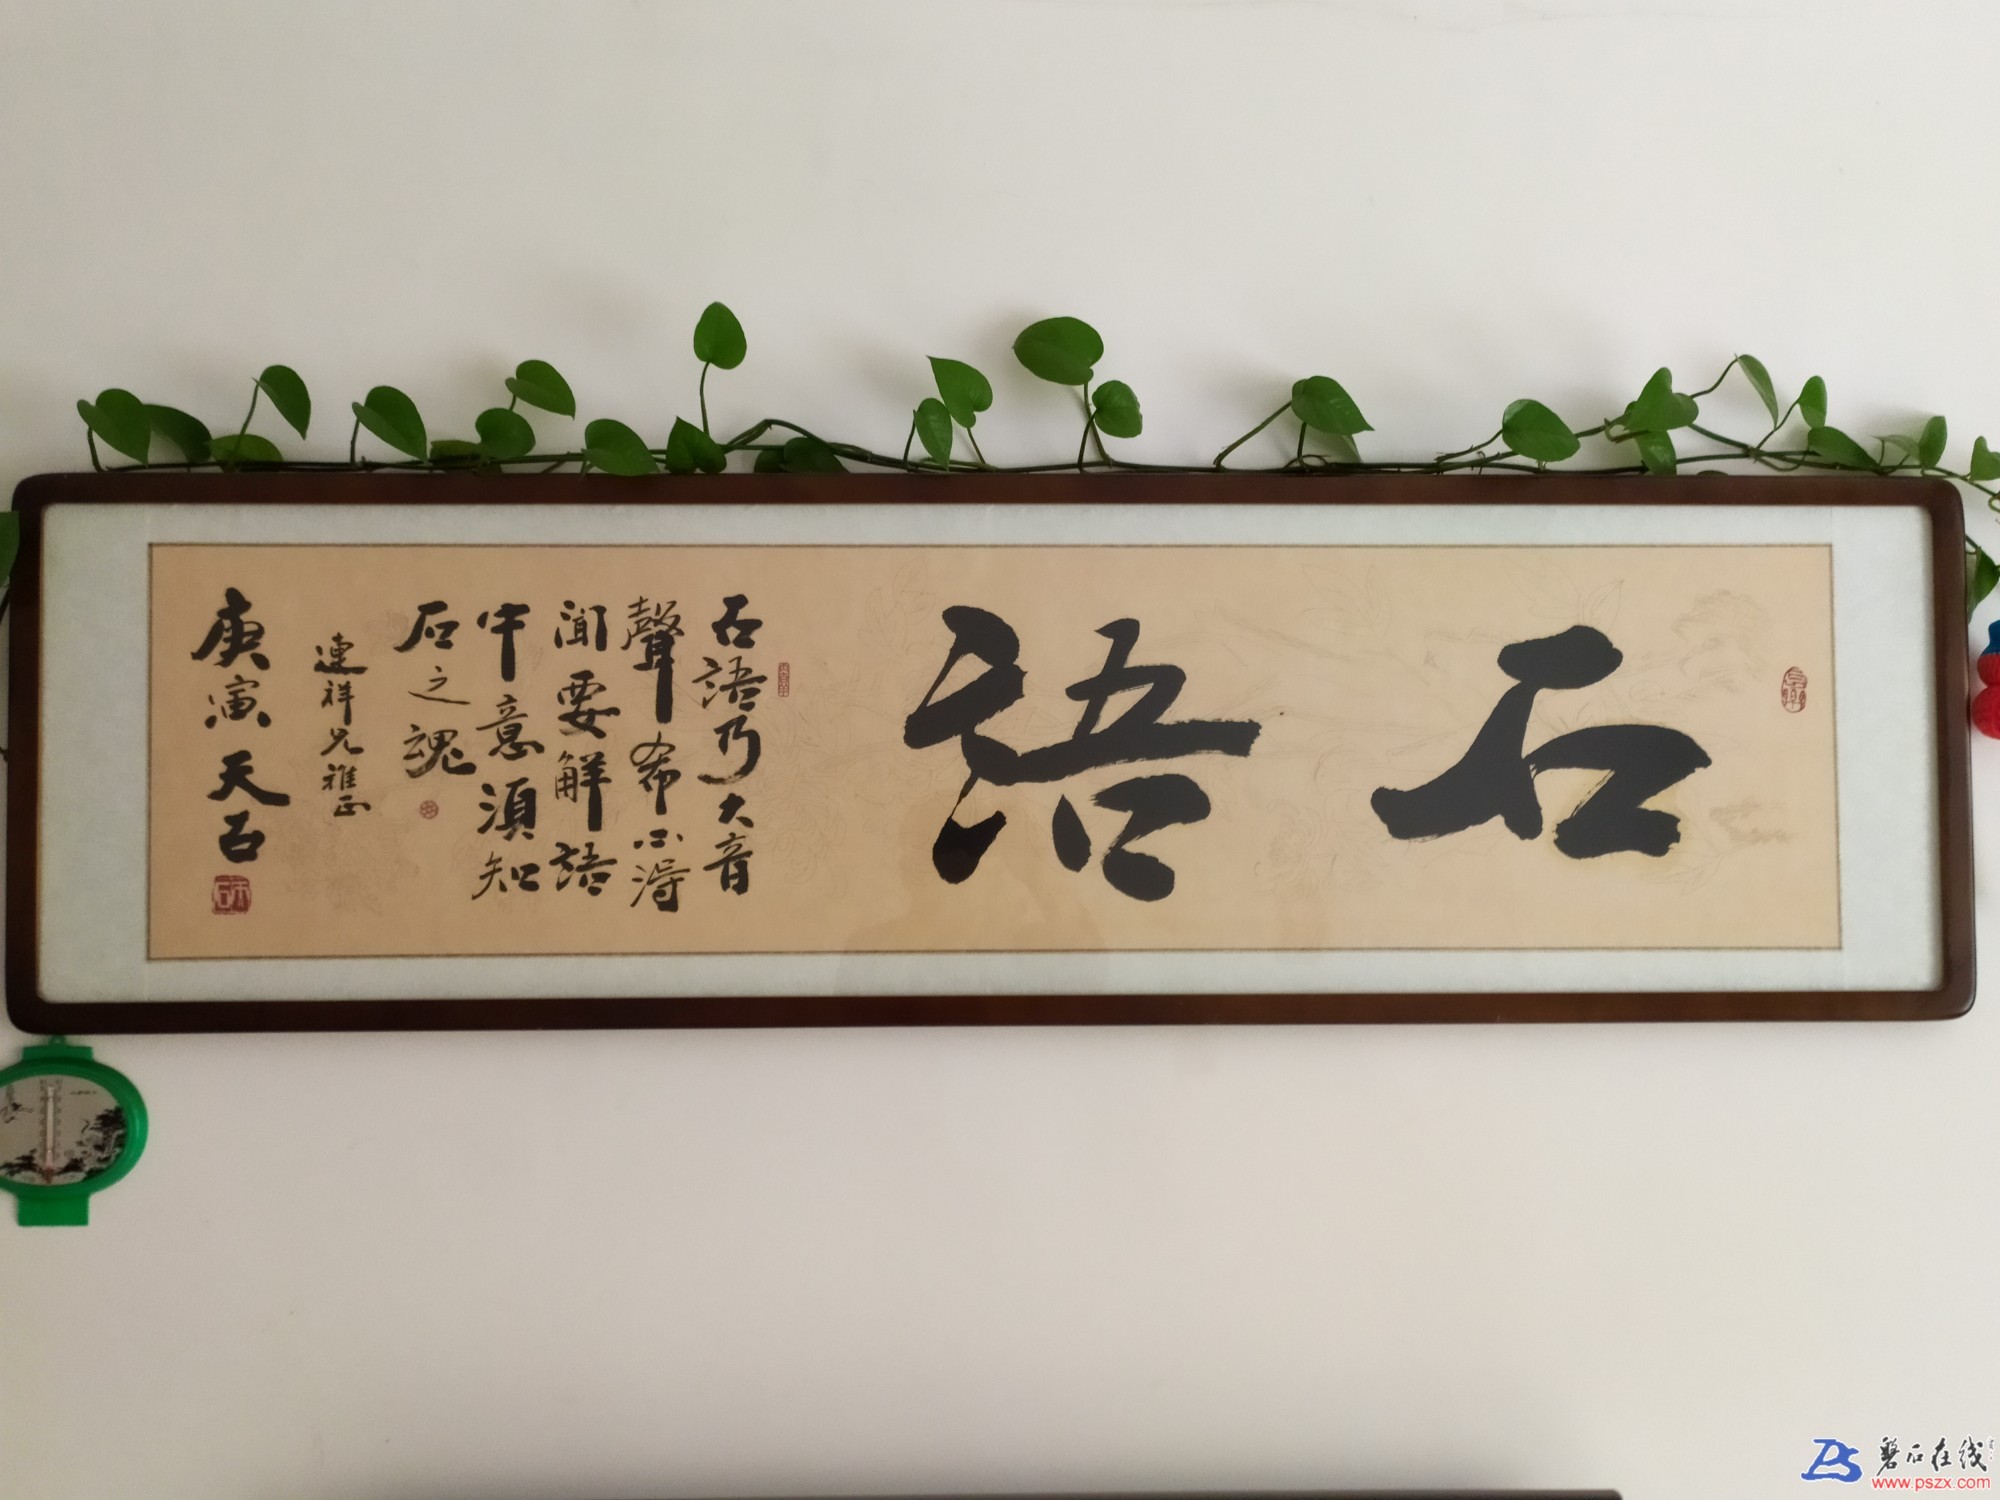 石語
石語乃大音
聲希不得
聞要解語
中意須知
石之魂
連祥兄雅正
庚寅天石
磐石在线
www.pszx.com